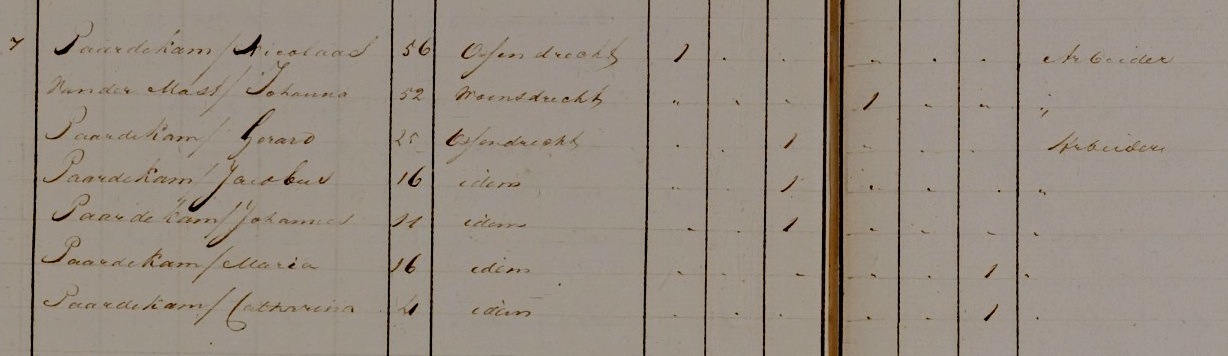 7 Paardekam / Nicolaas 56 Ossendrecht 1 . . . . . Arbeider
Van der Mast / Johanna 52 Woensdrecht " . . 1 . " "
Paardekam / Gerard 25 Ossendrecht . . 1 . . . Arbeider
Paardekam / Jacobus 16 idem " . 1 . . . "
Paardekam / Johannes 11 idem . . 1 . . . .
Paardekam / Maria 16 idem . . . . . 1 .
Paardekam / Catharina idem . . . . . 1 .